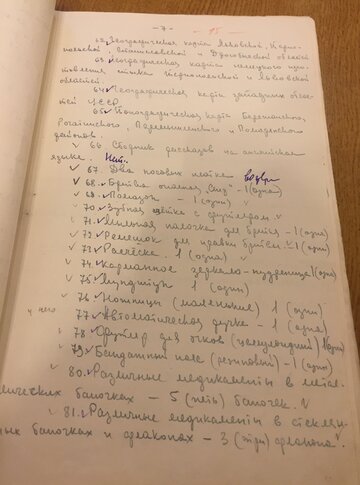 - 7 -
62. Географическая карта Львовской, Терно-
польской, Станиславской и Дрогобычской областей
63. Географическая карта немецкого изго-
товления стыка Тернопольской и Львовской
областей.
64. Географическая карта западных облас-
тей УССР.
65. Топографическая карта Бережанского,
Рогатинского, Перемышлянского и
районов.
v 66. Сборник рассказов на английском
языке. Нет.
v 67. Два носовых платка
v 68. Бритва опасная "Слид" - 1 (одна)
v 69. Помазок - 1 (один) v
v 70. Зубная щетка с футляром. v
v 71. Мыльная палочка для бритья - 1 (один)
v 72. Ремешок для правки бритвы - 1 (один)
v 73. Расческа 1 (одна) v
v 74. Карманное зеркало-пудреница 1 (одно)
v 75. Мундштук 1 (один)
v 76. Ножницы (маленькие) 1 (одни)
у него v 77. Автоматическая ручка - 1 (одна)
v 78. Футляр для очков (целулоидный) 1 (один)
v 79. Бандажный пояс (резиновый) - 1 (один)
v 80. Различные медикаменты в метал-
лических баночках - 5 (пять) баночек. v
v 81. Различные медикаменты в стеклян-
ных баночках и флаконах - 3 (три) флакона. v